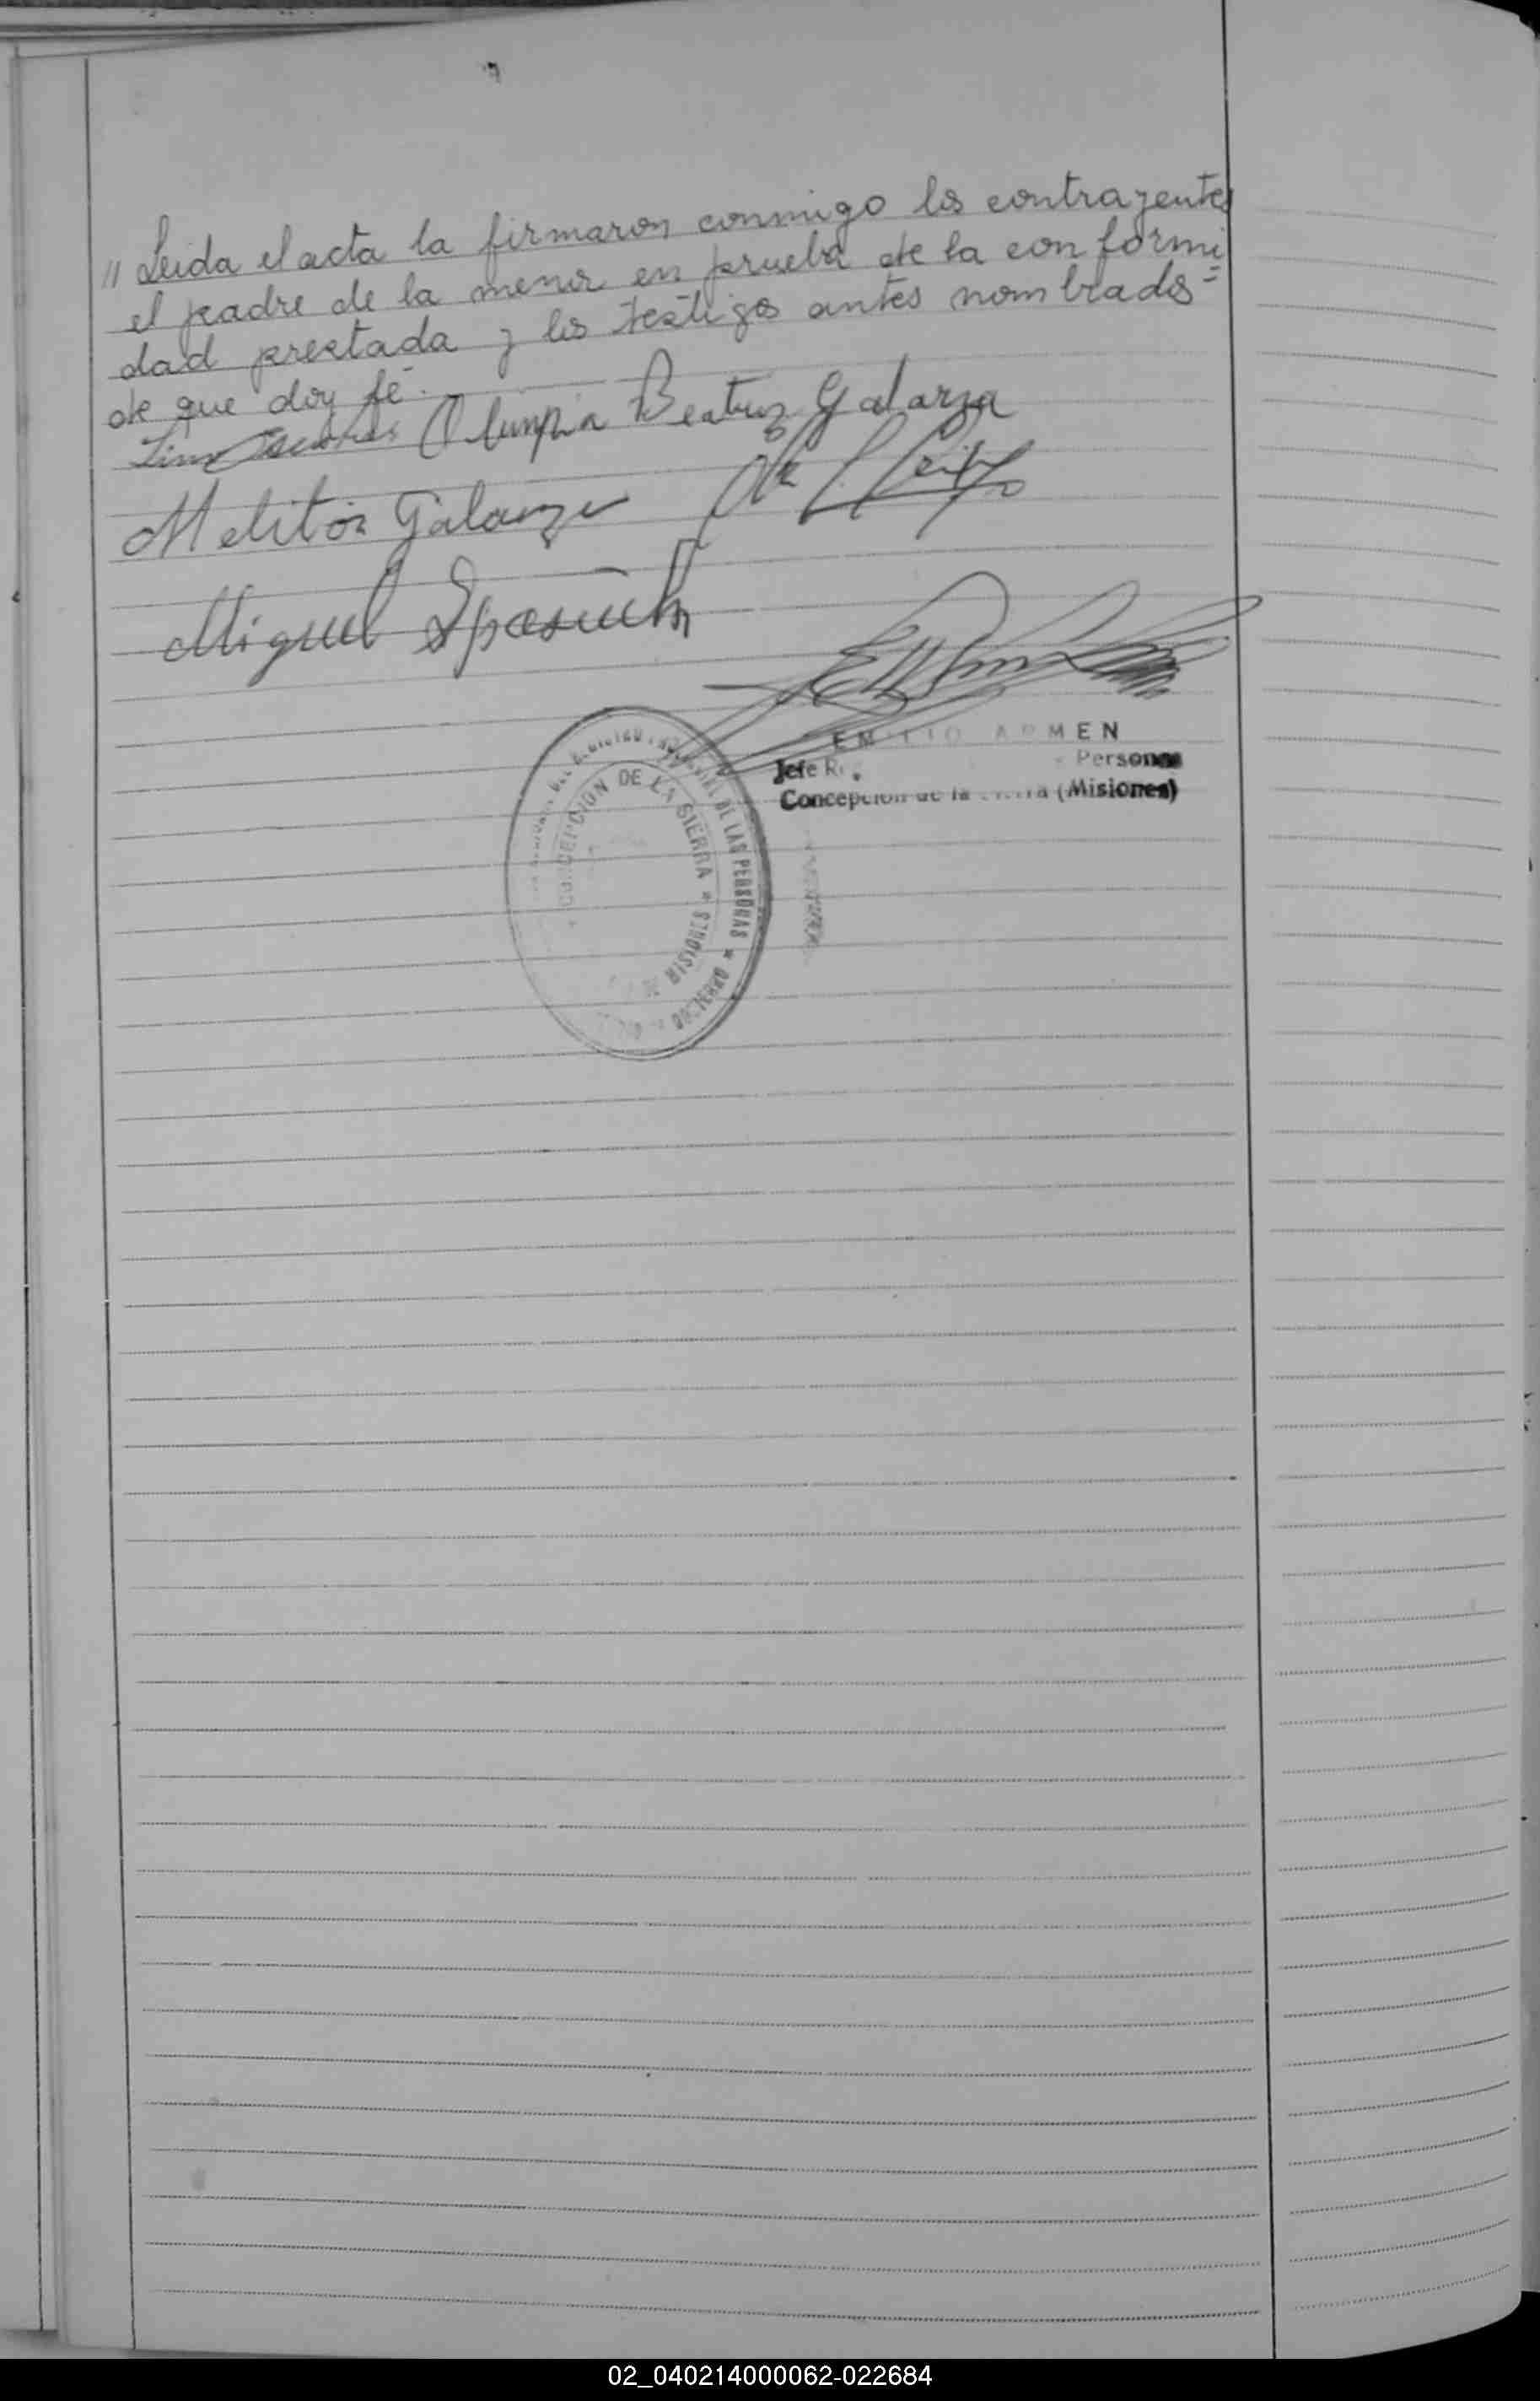 " Leida el acta la firmaron conmigo los contrayentes
el padre de la menor en prueba de la conformi
dad prestada y los testigos antes nombrados=
de que doy fé.
Olimpia Beatriz Galarza
Melitón Galarza
Miguel
EMILIO ARMEN
Jefe Personas
Concepcion de la Sierra (Misiones)
DE LAS PERSONAS *
CONCEPCION DE LA SIERRA * MISIONES
02_040214000062-022684